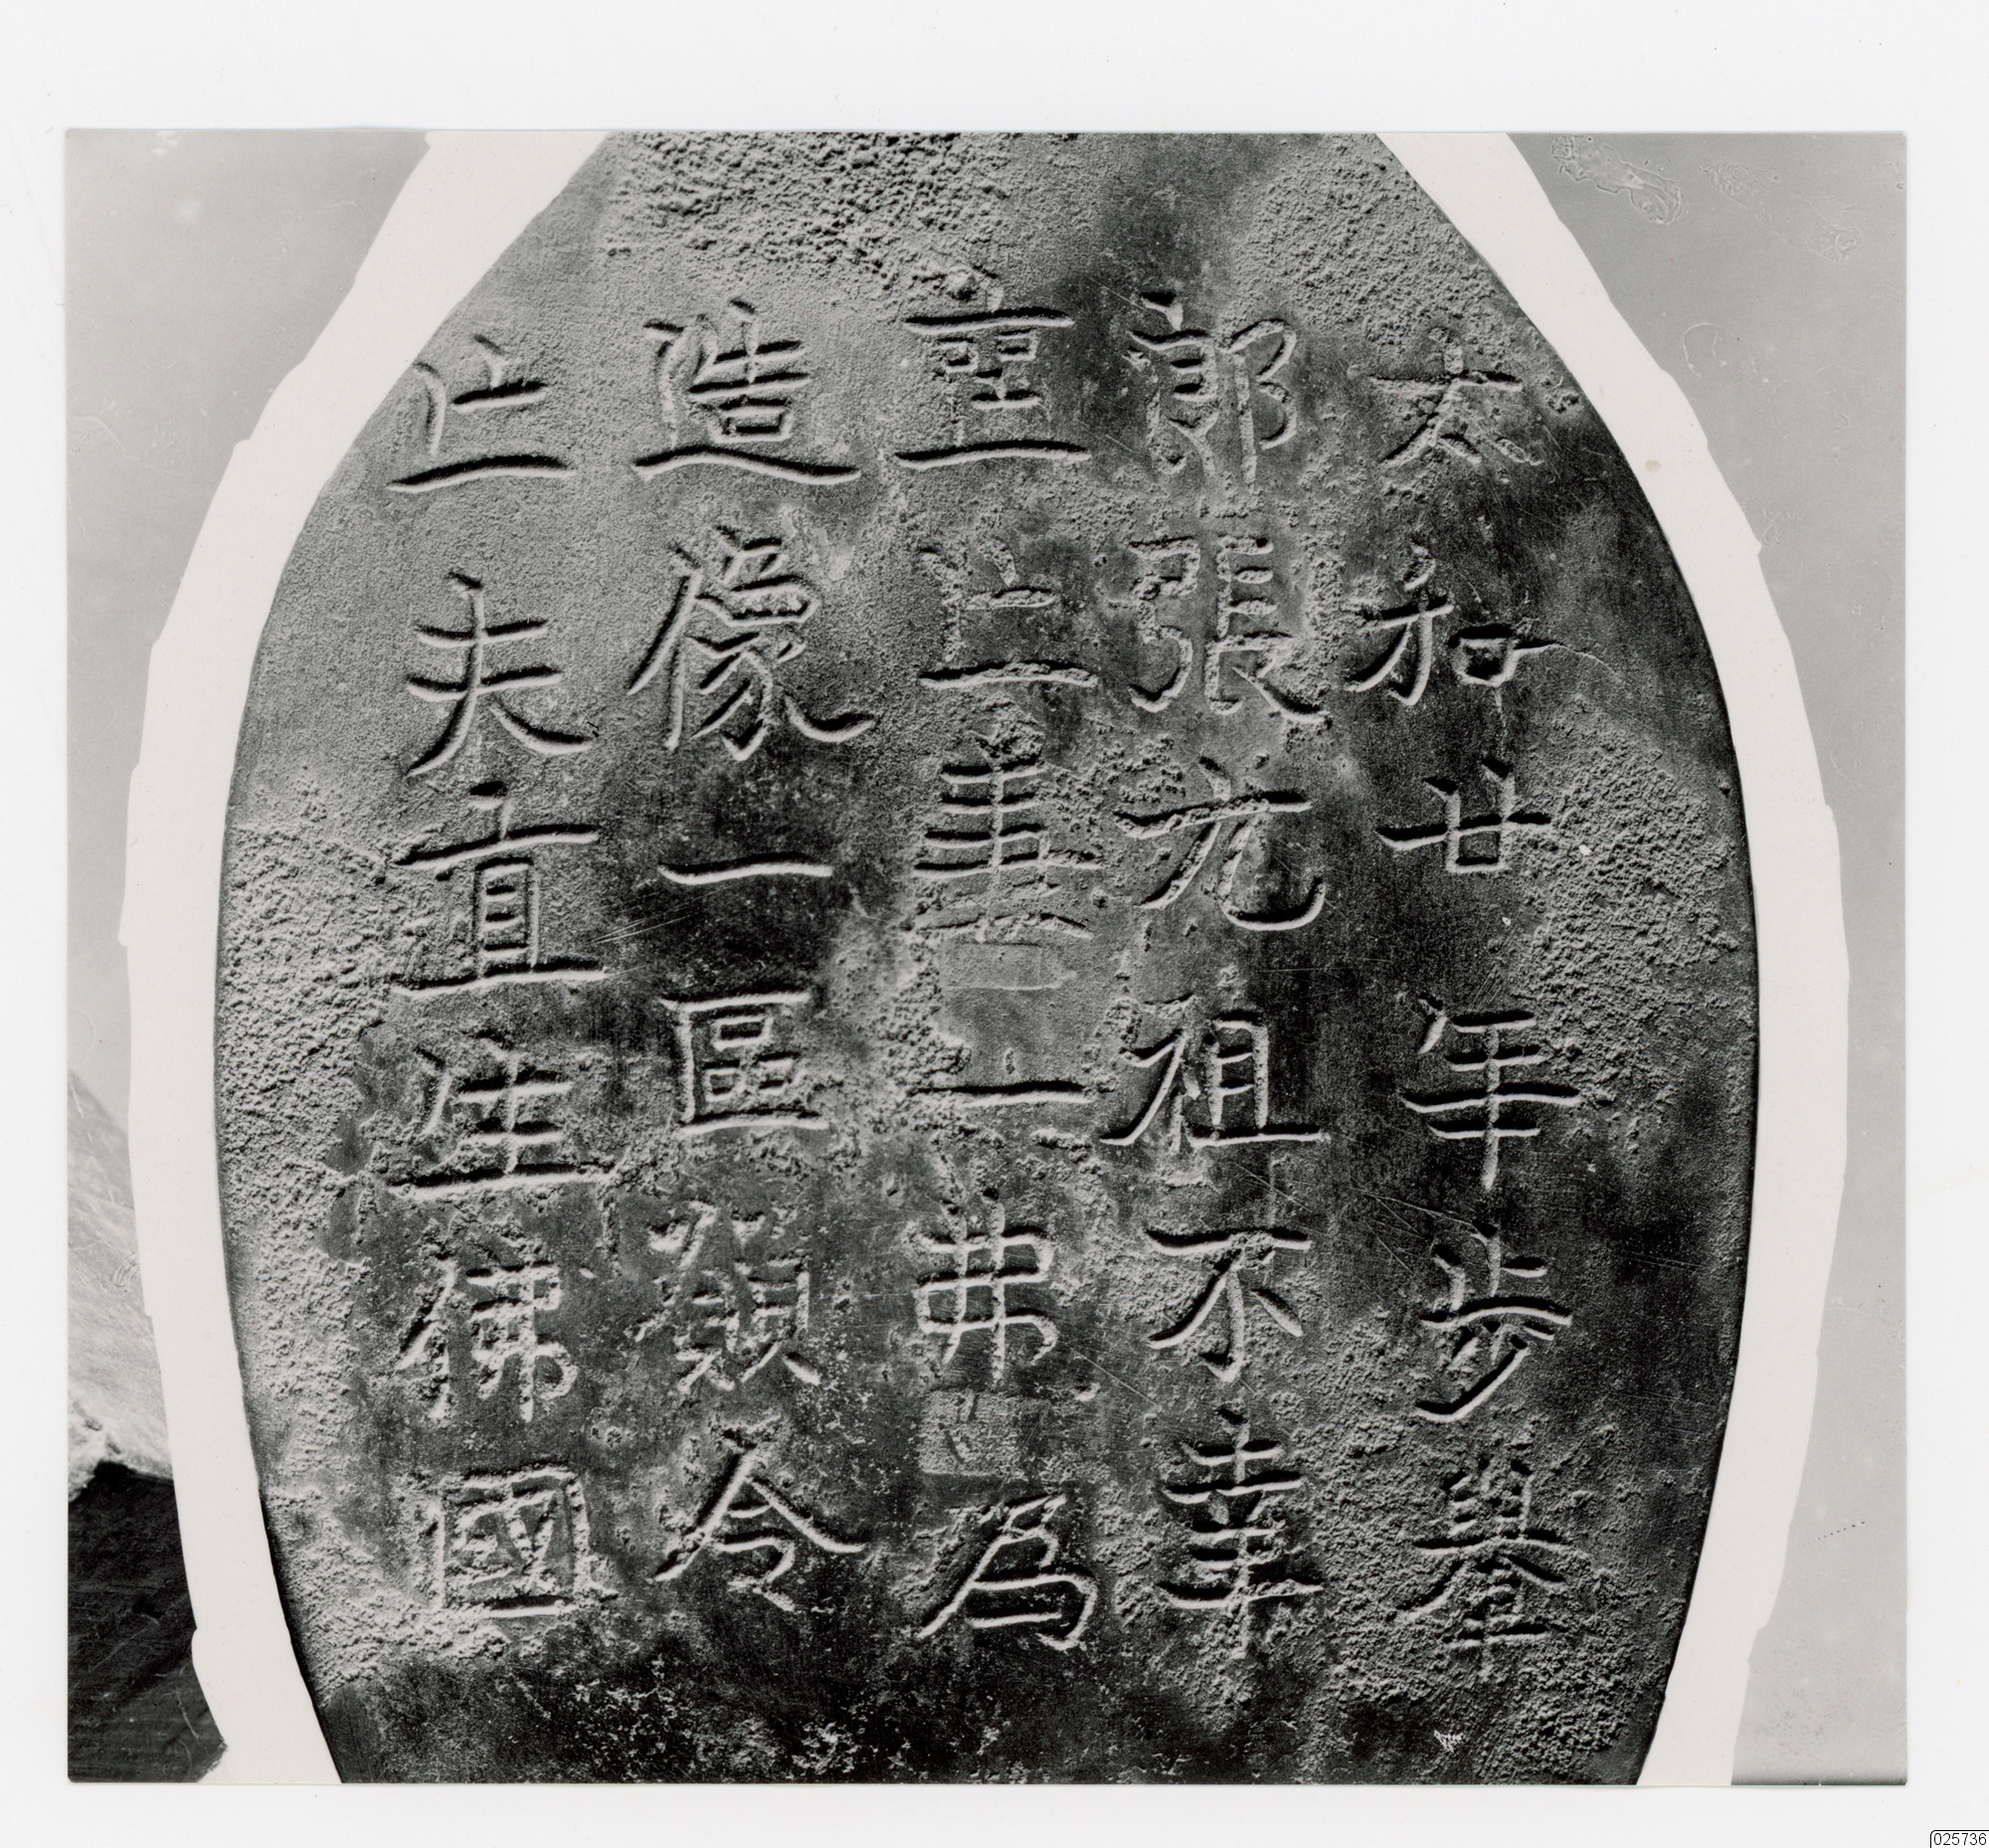 太和廿年步轝
郎張元祖不幸
喪亡妻一弗為
造像一區願令
亡夫直生佛國
025736